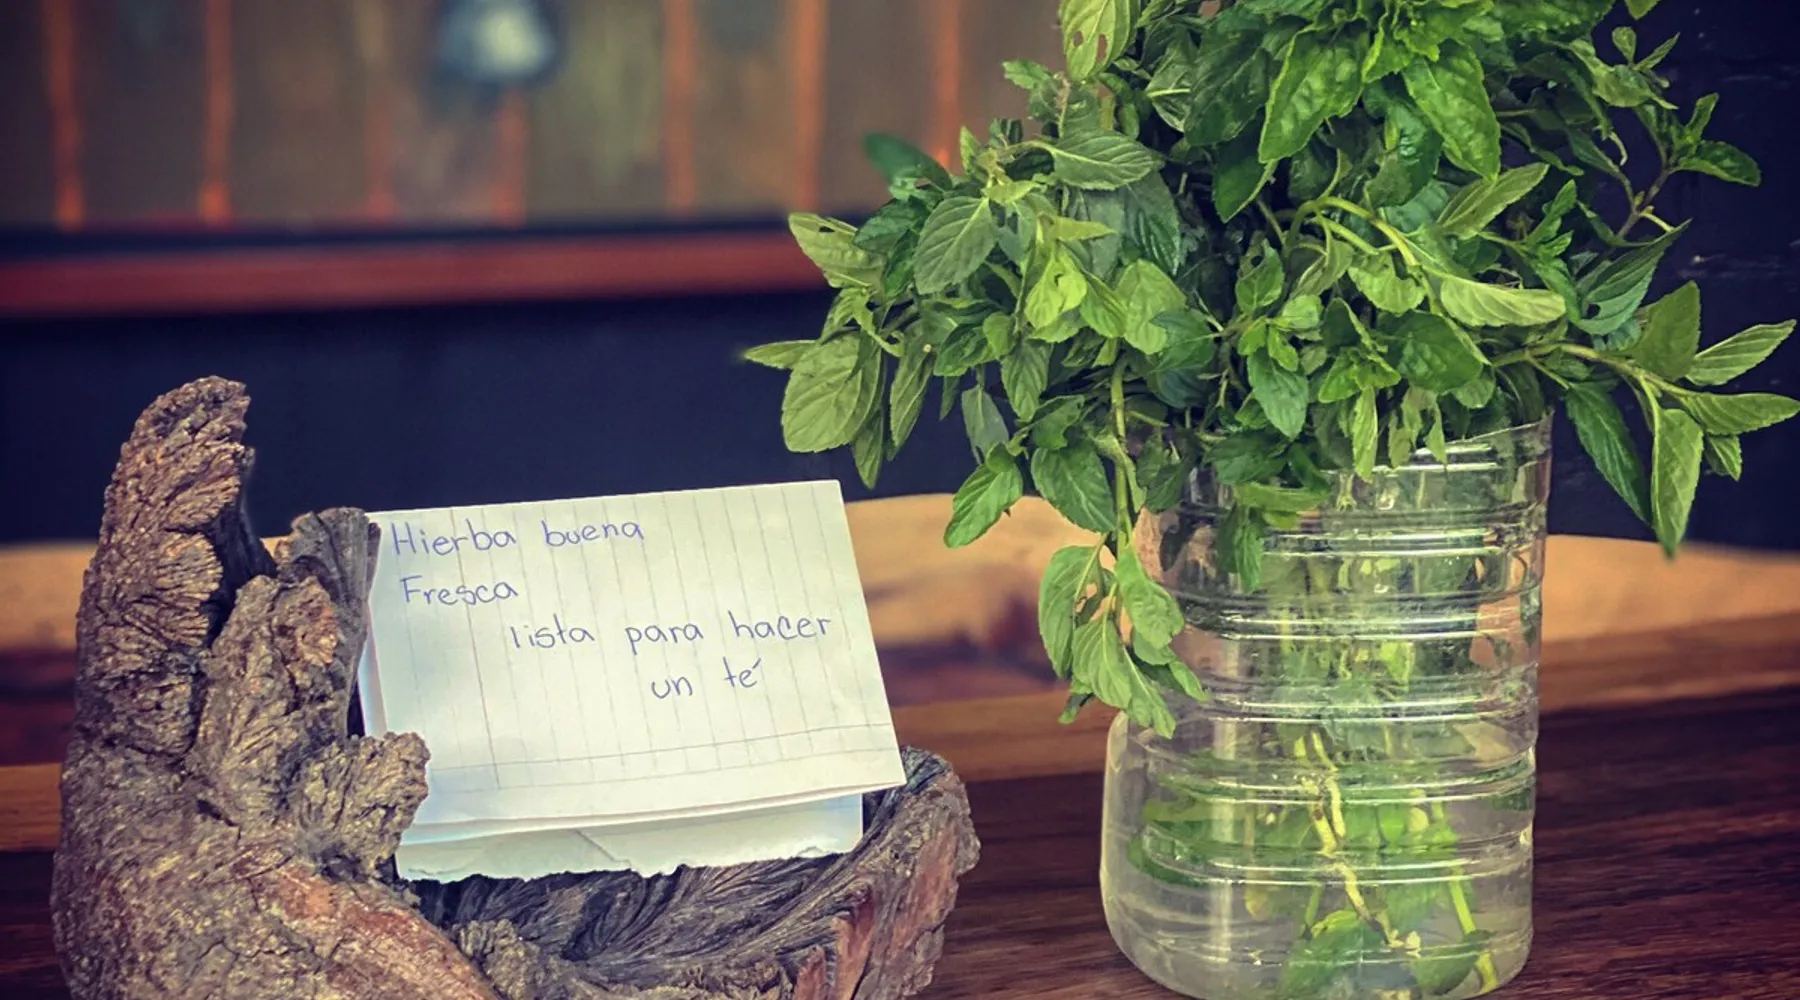 Hierba buena
Fresca
lista para hacer
un té